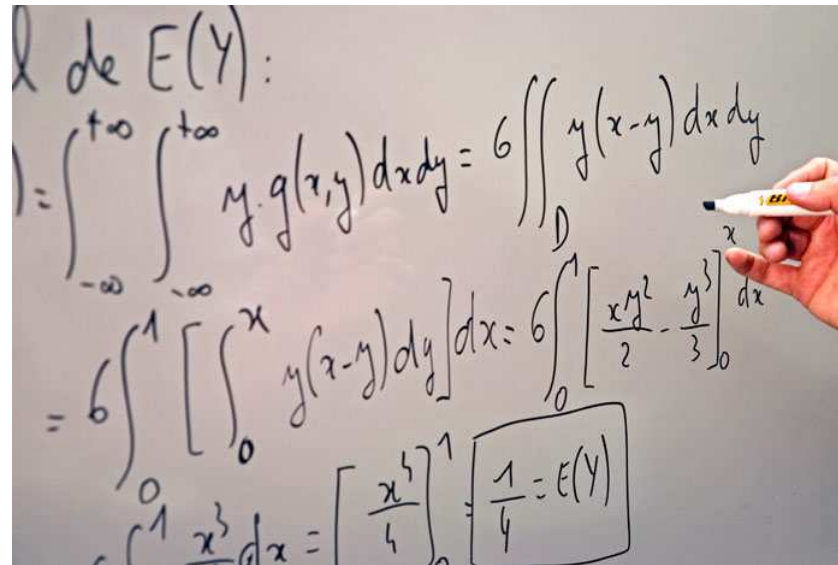 l de E(Y):
) = ∫_{-∞}^{+∞} ∫_{-∞}^{+∞} y. g(x,y) dx dy = 6 ∬_D y(x-y) dx dy
= 6 ∫_0^1 [ ∫_0^x y(x-y) dy ] dx = 6 ∫_0^1 [ xy²/2 - y³/3 ]_0^x dx
∫^1 x³ dx = [ x⁴/4 ]_0^1 = 1/4 = E(Y)